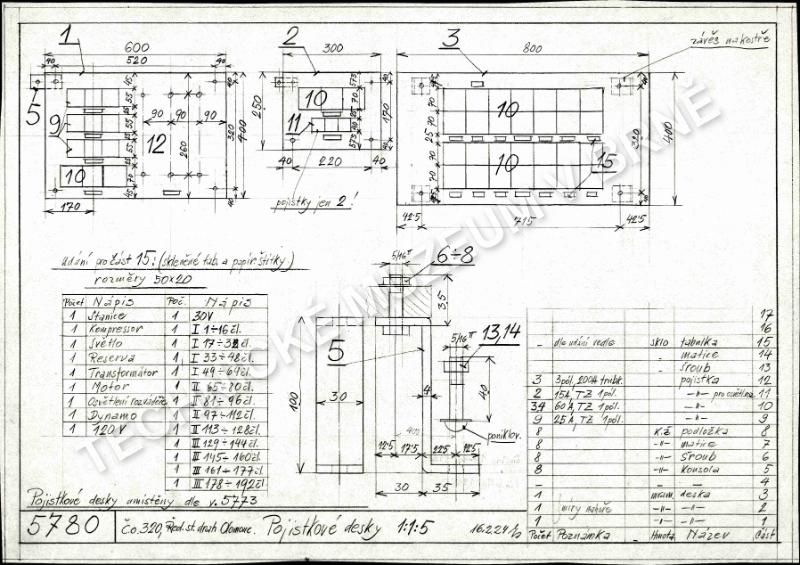 1
600
40
520
40
2
300
3
800
závěs na kostře
5
9
10
12
90
90
90
260
320
400
170
250
10
11
40
220
40
170
pojistky jen 2!
10
10
15
320
400
42.5
715
42.5
údání pro část 15: (skleněné tab. a papír. štítky)
rozměry 50×20
Počet Nápis Poč. Nápis
1 Stanice 1 30V
1 Kompressor 1 I 1÷16 čl.
1 Světlo 1 I 17÷32 čl.
1 Reserva 1 I 33÷48 čl.
1 Transformátor 1 I 49÷64 čl.
1 Motor 1 II 65÷80 čl.
1 Osvětlení rozváděče 1 II 81÷96 čl.
1 Dynamo 1 II 97÷112 čl.
1 120V 1 II 113÷128 čl.
1 III 129÷144 čl.
1 III 145÷160 čl.
1 III 161÷177 čl.
1 III 178÷192 čl.
5/16"
6÷8
35
5
100
30
4
5/16"
13,14
40
poniklov.
12.5
17.5
22.5
12.5
30
35
17
16
— dle udání vedle sklo tabulka 15
„ matice 14
„ šroub 13
3 3pól. 200A trubk. pojistka 12
2 15A, TZ 1pól. —„— pro osvětlení 11
34 60A, TZ 1pól. —„— 10
9 25A, TZ 1pól. —„— 9
8 k.ž. podložka 8
8 —„— matice 7
8 —„— šroub 6
8 —„— konsola 5
— — 4
1 mram. deska 3
1 míry nahoře —„— —„— 2
1 —„— —„— 1
Počet Poznámka Hmota Název Část
Pojistkové desky umístěny dle v. 5773
5780
Čo.320, Řed. st. drah Olomouc. Pojistkové desky 1:1:5
16.2.24
TECHNICKÉ MUZEUM V BRNĚ